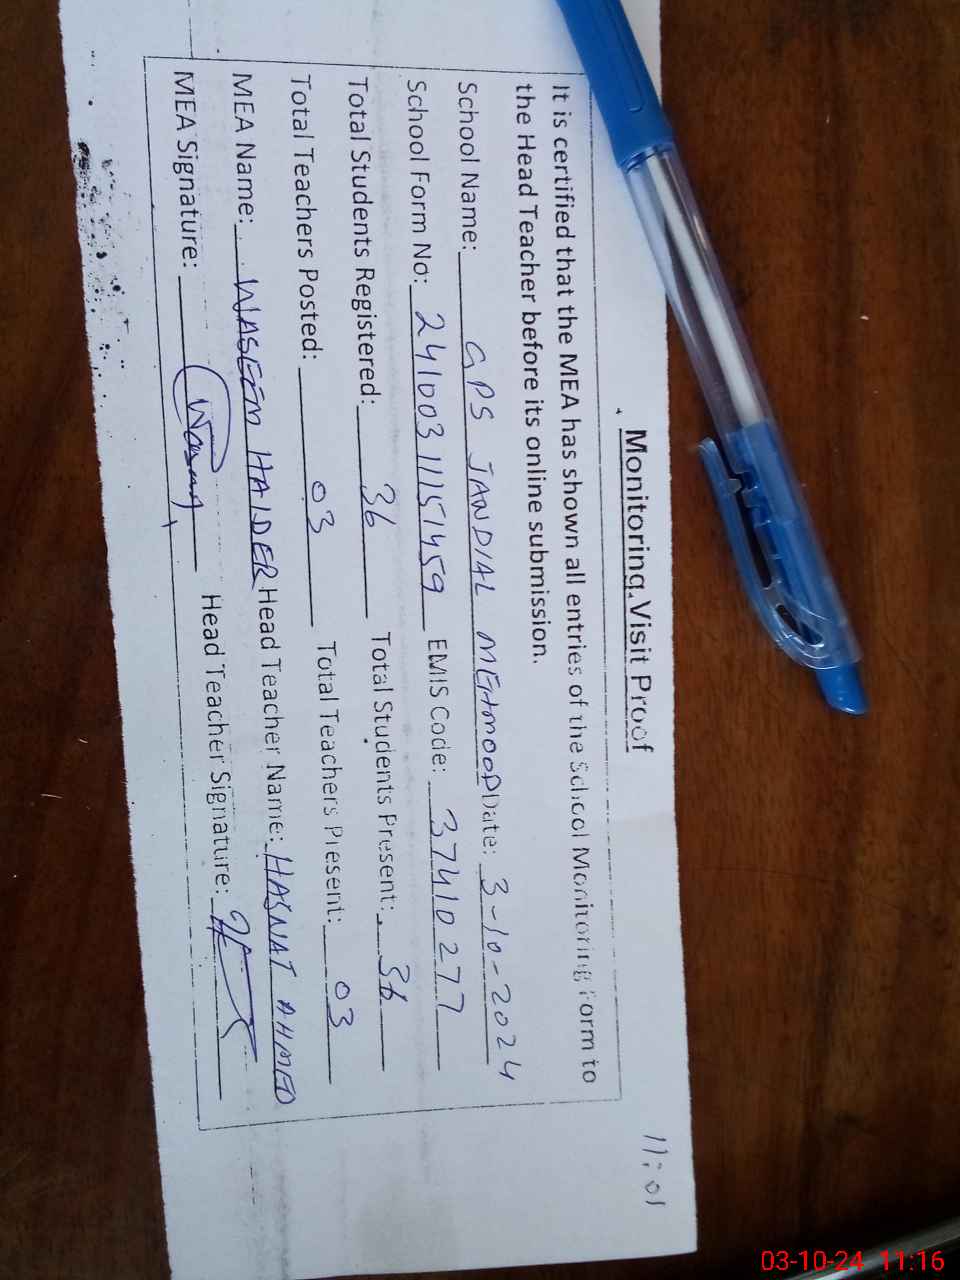 11:01
Monitoring Visit Proof
It is certified that the MEA has shown all entries of the School Monitoring Form to
the Head Teacher before its online submission.
School Name: GPS JANDIAL MEHMOOD Date: 3-10-2024
School Form No: 24100311151459 EMIS Code: 37410277
Total Students Registered: 36 Total Students Present: 36
Total Teachers Posted: 03 Total Teachers Present: 03
MEA Name: WASEEM HAIDER Head Teacher Name: HASNAT AHMED
MEA Signature: Head Teacher Signature:
03-10-24 11:16